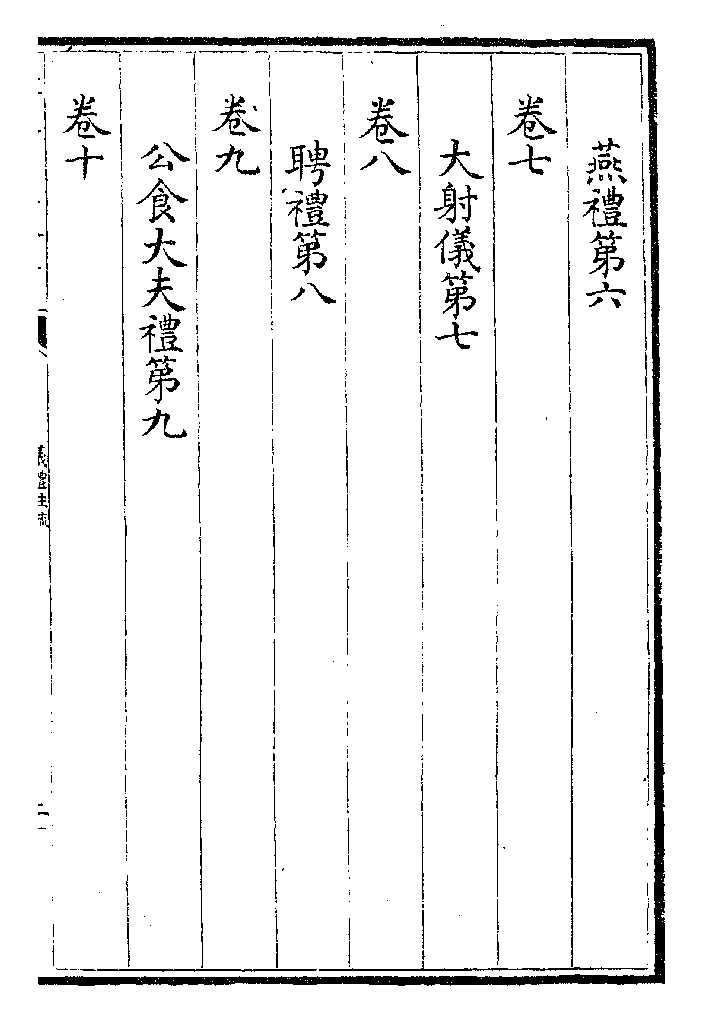 燕禮第六
卷七
大射儀第七
卷八
聘禮第八
卷九
公食大夫禮第九
卷十
儀禮註疏
二